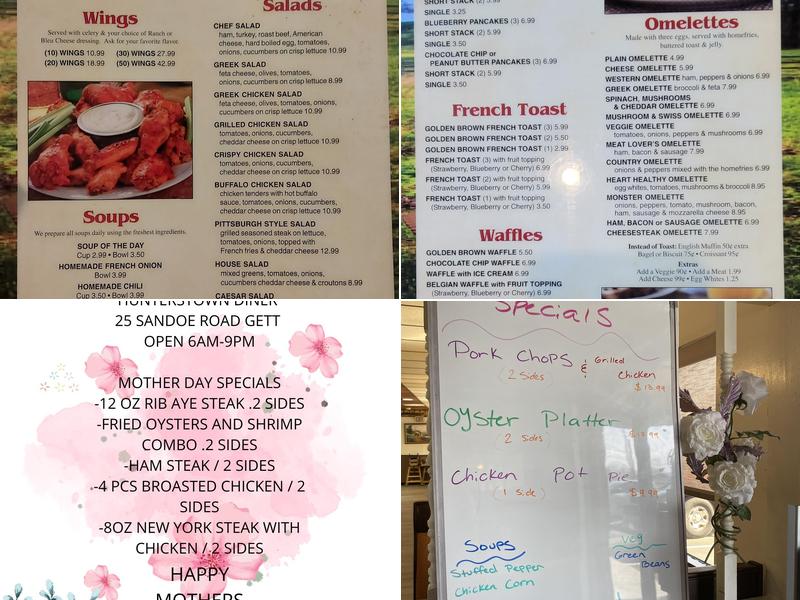 Wings
Served with celery & your choice of Ranch or
Bleu Cheese dressing. Ask for your favorite flavor.
(10) WINGS 10.99 (30) WINGS 27.99
(20) WINGS 18.99 (50) WINGS 42.99
Soups
We prepare all soups daily using the freshest ingredients.
SOUP OF THE DAY
Cup 2.99 • Bowl 3.50
HOMEMADE FRENCH ONION
Bowl 3.99
HOMEMADE CHILI
Cup 3.50 • Bowl 3.99
Salads
CHEF SALAD
ham, turkey, roast beef, American
cheese, hard boiled egg, tomatoes,
onions, cucumbers on crisp lettuce 10.99
GREEK SALAD
feta cheese, olives, tomatoes,
onions, cucumbers on crisp lettuce 8.99
GREEK CHICKEN SALAD
feta cheese, olives, tomatoes, onions,
cucumbers on crisp lettuce 10.99
GRILLED CHICKEN SALAD
tomatoes, onions, cucumbers,
cheddar cheese on crisp lettuce 10.99
CRISPY CHICKEN SALAD
tomatoes, onions, cucumbers,
cheddar cheese on crisp lettuce 10.99
BUFFALO CHICKEN SALAD
chicken tenders with hot buffalo
sauce, tomatoes, onions, cucumbers,
cheddar cheese on crisp lettuce 10.99
PITTSBURGH STYLE SALAD
grilled seasoned steak on lettuce,
tomatoes, onions, topped with
French fries & cheddar cheese 12.99
HOUSE SALAD
mixed greens, tomatoes, onions,
cucumbers cheddar cheese & croutons 8.99
CAESAR SALAD
SHORT STACK (2) 5.99
SINGLE 3.25
BLUEBERRY PANCAKES (3) 6.99
SHORT STACK (2) 5.99
SINGLE 3.50
CHOCOLATE CHIP or
PEANUT BUTTER PANCAKES (3) 6.99
SHORT STACK (2) 5.99
SINGLE 3.50
French Toast
GOLDEN BROWN FRENCH TOAST (3) 5.99
GOLDEN BROWN FRENCH TOAST (2) 5.50
GOLDEN BROWN FRENCH TOAST (1) 2.99
FRENCH TOAST (3) with fruit topping
(Strawberry, Blueberry or Cherry) 6.99
FRENCH TOAST (2) with fruit topping
(Strawberry, Blueberry or Cherry) 5.99
FRENCH TOAST (1) with fruit topping
(Strawberry, Blueberry or Cherry) 3.50
Waffles
GOLDEN BROWN WAFFLE 5.50
CHOCOLATE CHIP WAFFLE 6.99
WAFFLE with ICE CREAM 6.99
BELGIAN WAFFLE with FRUIT TOPPING
(Strawberry, Blueberry or Cherry) 6.99
Omelettes
Made with three eggs, served with homefries,
buttered toast & jelly.
PLAIN OMELETTE 4.99
CHEESE OMELETTE 5.99
WESTERN OMELETTE ham, peppers & onions 6.99
GREEK OMELETTE broccoli & feta 7.99
SPINACH, MUSHROOMS
& CHEDDAR OMELETTE 6.99
MUSHROOM & SWISS OMELETTE 6.99
VEGGIE OMELETTE
tomatoes, onions, peppers & mushrooms 6.99
MEAT LOVER'S OMELETTE
ham, bacon & sausage 7.99
COUNTRY OMELETTE
onions & peppers mixed with the homefries 6.99
HEART HEALTHY OMELETTE
egg whites, tomatoes, mushrooms & broccoli 8.95
MONSTER OMELETTE
onions, peppers, tomato, mushroom, bacon,
ham, sausage & mozzarella cheese 8.95
HAM, BACON or SAUSAGE OMELETTE 6.99
CHEESESTEAK OMELETTE 7.99
Instead of Toast: English Muffin 50¢ extra
Bagel or Biscuit 75¢ • Croissant 95¢
Extras
Add a Veggie 90¢ • Add a Meat 1.99
Add Cheese 99¢ • Egg Whites 1.25
HUNTERSTOWN DINER
25 SANDOE ROAD GETT
OPEN 6AM-9PM
MOTHER DAY SPECIALS
-12 OZ RIB AYE STEAK .2 SIDES
-FRIED OYSTERS AND SHRIMP
COMBO .2 SIDES
-HAM STEAK / 2 SIDES
-4 PCS BROASTED CHICKEN / 2
SIDES
-8OZ NEW YORK STEAK WITH
CHICKEN /.2 SIDES
HAPPY
MOTHERS
Specials
Pork Chops & Grilled
Chicken
2 Sides
$13.99
Oyster Platter
2 Sides
Chicken Pot Pie
1 Side
$9.99
Soups
Stuffed Pepper
Chicken Corn
Veg
Green
Beans